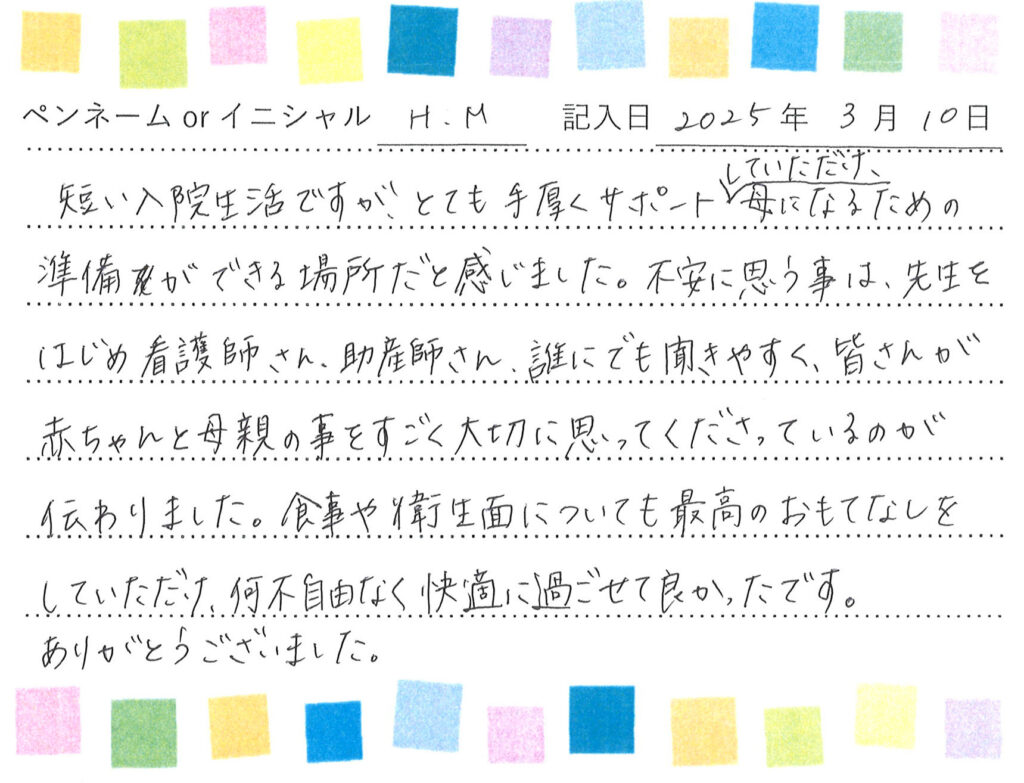 ペンネーム or イニシャル H.M 記入日 2025年 3月 10日
していただけ、
短い入院生活ですが、とても手厚くサポート母になるための
準備ができる場所だと感じました。不安に思う事は、先生を
はじめ看護師さん、助産師さん、誰にでも聞きやすく、皆さんが
赤ちゃんと母親の事をすごく大切に思ってくださっているのが
伝わりました。食事や衛生面についても最高のおもてなしを
していただけ、何不自由なく快適に過ごせて良かったです。
ありがとうございました。